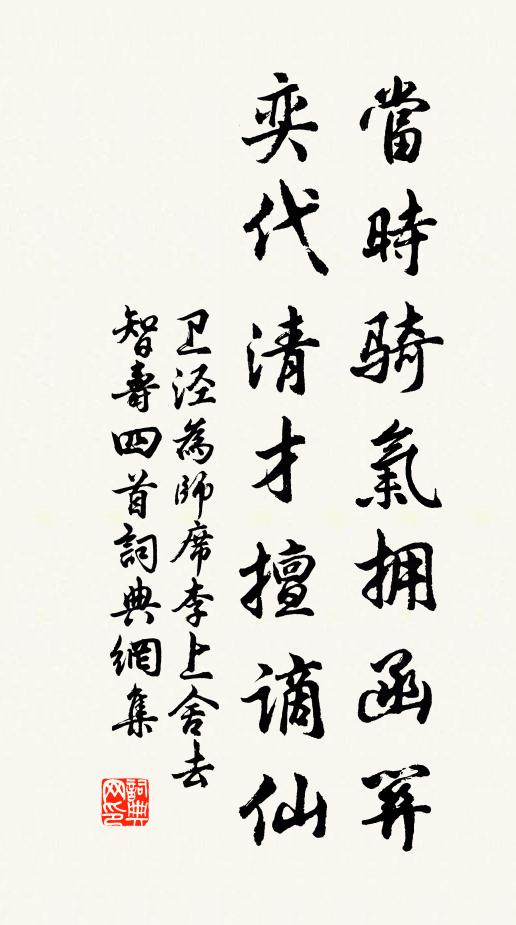 當時骑氣拥函関
奕代清才擅谪仙
卫泾為師席李上舍去
智壽四首詞典網集
詞典网印